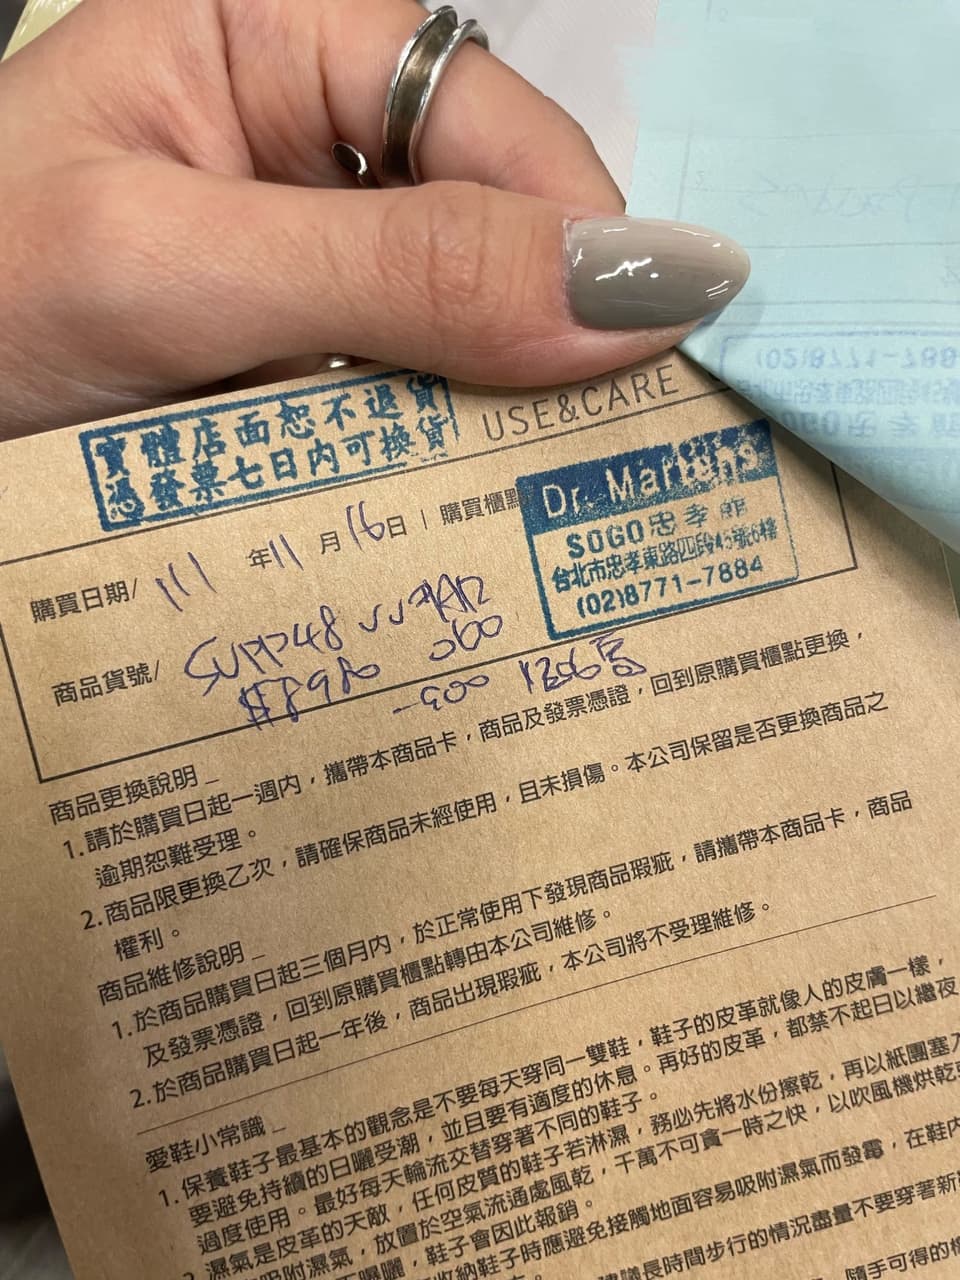 USE&CARE
實體店面恕不退貨
憑發票七日內可換貨
購買日期/ 111 年 11 月 16 日 | 購買櫃點
Dr. Martens
SOGO忠孝館
台北市忠孝東路四段45號6樓
(02)8771-7884
商品貨號/
$8980
-300
商品更換說明_
1.請於購買日起一週內，攜帶本商品卡，商品及發票憑證，回到原購買櫃點更換，
逾期恕難受理。
2.商品限更換乙次，請確保商品未經使用，且未損傷。本公司保留是否更換商品之
權利。
商品維修說明_
1.於商品購買日起三個月內，於正常使用下發現商品瑕疵，請攜帶本商品卡，商品
及發票憑證，回到原購買櫃點轉由本公司維修。
2.於商品購買日起一年後，商品出現瑕疵，本公司將不受理維修。
愛鞋小常識_
1.保養鞋子最基本的觀念是不要每天穿同一雙鞋，鞋子的皮革就像人的皮膚一樣，
要避免持續的日曬受潮，並且要有適度的休息。再好的皮革，都禁不起日以繼夜
過度使用。最好每天輪流交替穿著不同的鞋子。
濕氣是皮革的天敵，任何皮質的鞋子若淋濕，務必先將水份擦乾，再以紙團塞入
吸附濕氣，放置於空氣流通處風乾，千萬不可貪一時之快，以吹風機烘乾
曝曬，鞋子會因此報銷。
收納鞋子時應避免接觸地面容易吸附濕氣而發霉，在鞋內
建議長時間步行的情況盡量不要穿著新
隨手可得的